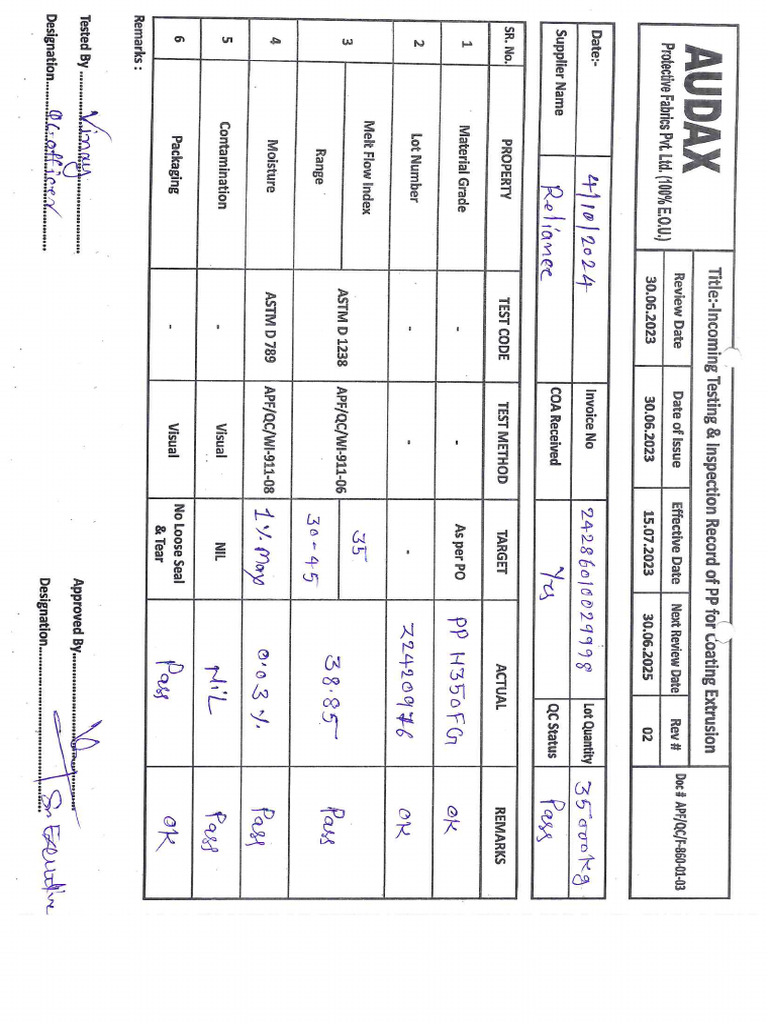 AUDAX
Protective Fabrics Pvt. Ltd. (100% E.O.U.)
Title:-Incoming Testing & Inspection Record of PP for Coating Extrusion
Doc # APF/QC/F-860-01-03
Review Date Date of Issue Effective Date Next Review Date Rev #
30.06.2023 30.06.2023 15.07.2023 30.06.2025 02
Date:- 4/10/2024 Invoice No 24286010029998 Lot Quantity 35000Kg
Supplier Name Reliance COA Received Yes QC Status Pass
SR. No. PROPERTY TEST CODE TEST METHOD TARGET ACTUAL REMARKS
1 Material Grade - - As per PO PP H350FG OK
2 Lot Number - - - Z2420976 OK
3 Melt Flow Index ASTM D 1238 APF/QC/WI-911-06 35 38.85 Pass
Range 30-45
4 Moisture ASTM D 789 APF/QC/WI-911-08 1% Max 0.03% Pass
5 Contamination - Visual NIL NiL Pass
6 Packaging - Visual No Loose Seal & Tear Pass OK
Remarks :
Tested By Vinay Approved By
Designation QC officer Designation Sr Executive